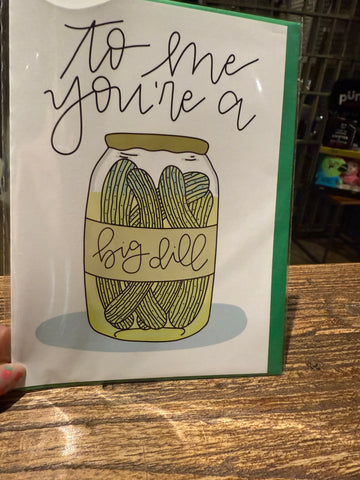 to me
you're a
big dill
pür